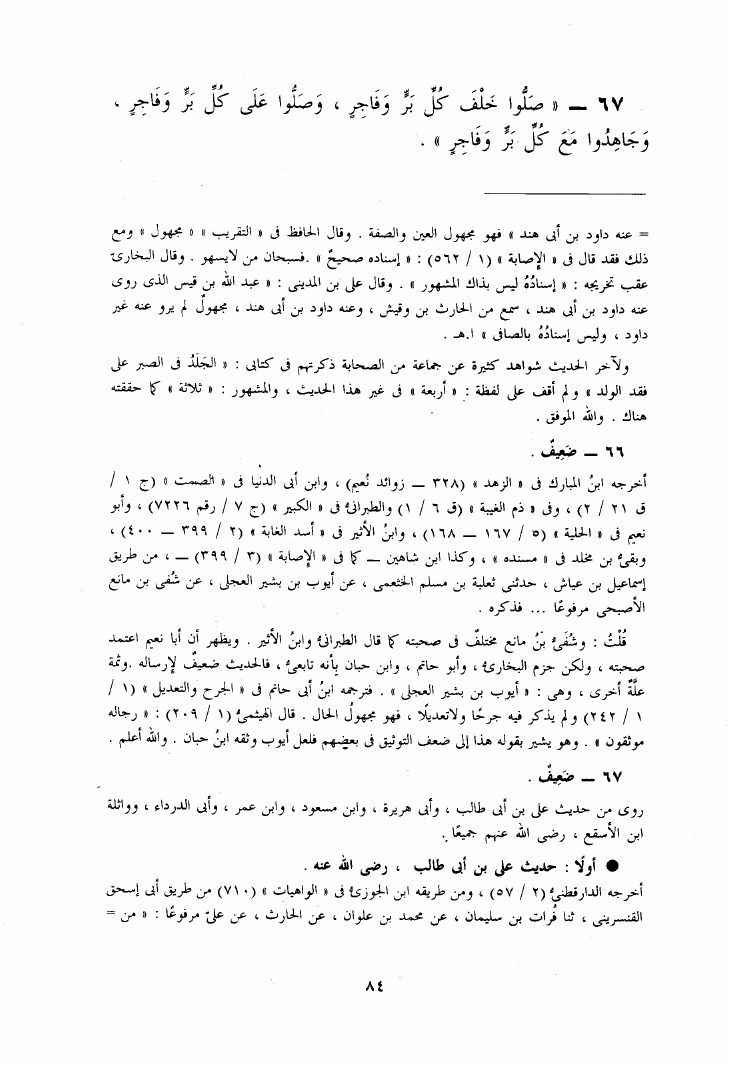 ٦٧ — « صَلُّوا خَلْفَ كُلِّ بَرٍّ وَفَاجِرٍ ، وَصَلُّوا عَلَى كُلِّ بَرٍّ وَفَاجِرٍ ،
وَجَاهِدُوا مَعَ كُلِّ بَرٍّ وَفَاجِرٍ » .
= عنه داود بن أبى هند » فهو مجهول العين والصفة . وقال الحافظ فى « التقريب » « مجهول » ومع
ذلك فقد قال فى « الإصابة » (١ / ٥٦٢) : « إسناده صحيحٌ » .فسبحان من لايسهو . وقال البخارىّ
عقب تخريجه : « إسنادُهُ ليس بذاك المشهور » . وقال على بن المدينى : « عبد الله بن قيس الذى روى
عنه داود بن أبى هند ، سمع من الحارث بن وقيش ، وعنه داود بن أبى هند ، مجهولٌ لم يرو عنه غير
داود ، وليس إسنادُهُ بالصافى » ا.هـ .
ولآخر الحديث شواهد كثيرة عن جماعة من الصحابة ذكرتهم فى كتابى : « الجَلَدُ فى الصبر على
فقد الولد » ولم أقف على لفظة : « أربعة » فى غير هذا الحديث ، والمشهور : « ثلاثة » كما حققته
هناك . والله الموفق .
٦٦ — ضَعِيفٌ .
أخرجه ابنُ المبارك فى « الزهد » (٣٢٨ — زوائد نُعيم) ، وابن أبى الدنيا فى « الصمت » (ج ١ /
ق ٢١ / ٢) ، وفى « ذم الغيبة » (ق ٦ / ١) والطبرانىُّ فى « الكبير » (ج ٧ / رقم ٧٢٢٦) ، وأبو
نعيم فى « الحلية » (٥ / ١٦٧ — ١٦٨) ، وابنُ الأثير فى « أسد الغابة » (٢ / ٣٩٩ — ٤٠٠) ،
وبقىُّ بن مخلد فى « مسنده » ، وكذا ابن شاهين — كما فى « الإصابة » (٣ / ٣٩٩) — ، من طريق
إسماعيل بن عياش ، حدثنى ثعلبة بن مسلم الخثعمى ، عن أيوب بن بشير العجلى ، عن شُفى بن مانع
الأصبحى مرفوعًا ... فذكره .
قُلْتُ : وشُفَىُّ بنُ مانع مختلفٌ فى صحبته كما قال الطبرانىُّ وابنُ الأثير . ويظهر أن أبا نعيم اعتمد
صحبته ، ولكن جزم البخارىُّ ، وأبو حاتم ، وابن حبان بأنه تابعىُّ ، فالحديث ضعيفٌ لإرساله .وثمة
علَّةٌ أخرى ، وهى : « أيوب بن بشير العجلى » . فترجمه ابنُ أبى حاتم فى « الجرح والتعديل » (١ /
١ / ٢٤٢) ولم يذكر فيه جرحًا ولاتعديلًا ، فهو مجهولُ الحال . قال الهيثمىُّ (١ / ٢٠٩) : « رجاله
موثقون » . وهو يشير بقوله هذا إلى ضعف التوثيق فى بعضهم فلعل أيوب وثقه ابنُ حبان . والله أعلم .
٦٧ — ضَعِيفٌ .
روى من حديث على بن أبى طالب ، وأبى هريرة ، وابن مسعود ، وابن عمر ، وأبى الدرداء ، وواثلة
ابن الأسقع ، رضى الله عنهم جميعًا .
● أولًا : حديث على بن أبى طالب ، رضى الله عنه .
أخرجه الدارقطنىُّ (٢ / ٥٧) ، ومن طريقه ابن الجوزىُّ فى « الواهيات » (٧١٠) من طريق أبى إسحق
القنسرينى ، ثنا فُرات بن سليمان ، عن محمد بن علوان ، عن الحارث ، عن علىّ مرفوعًا : « من =
٨٤